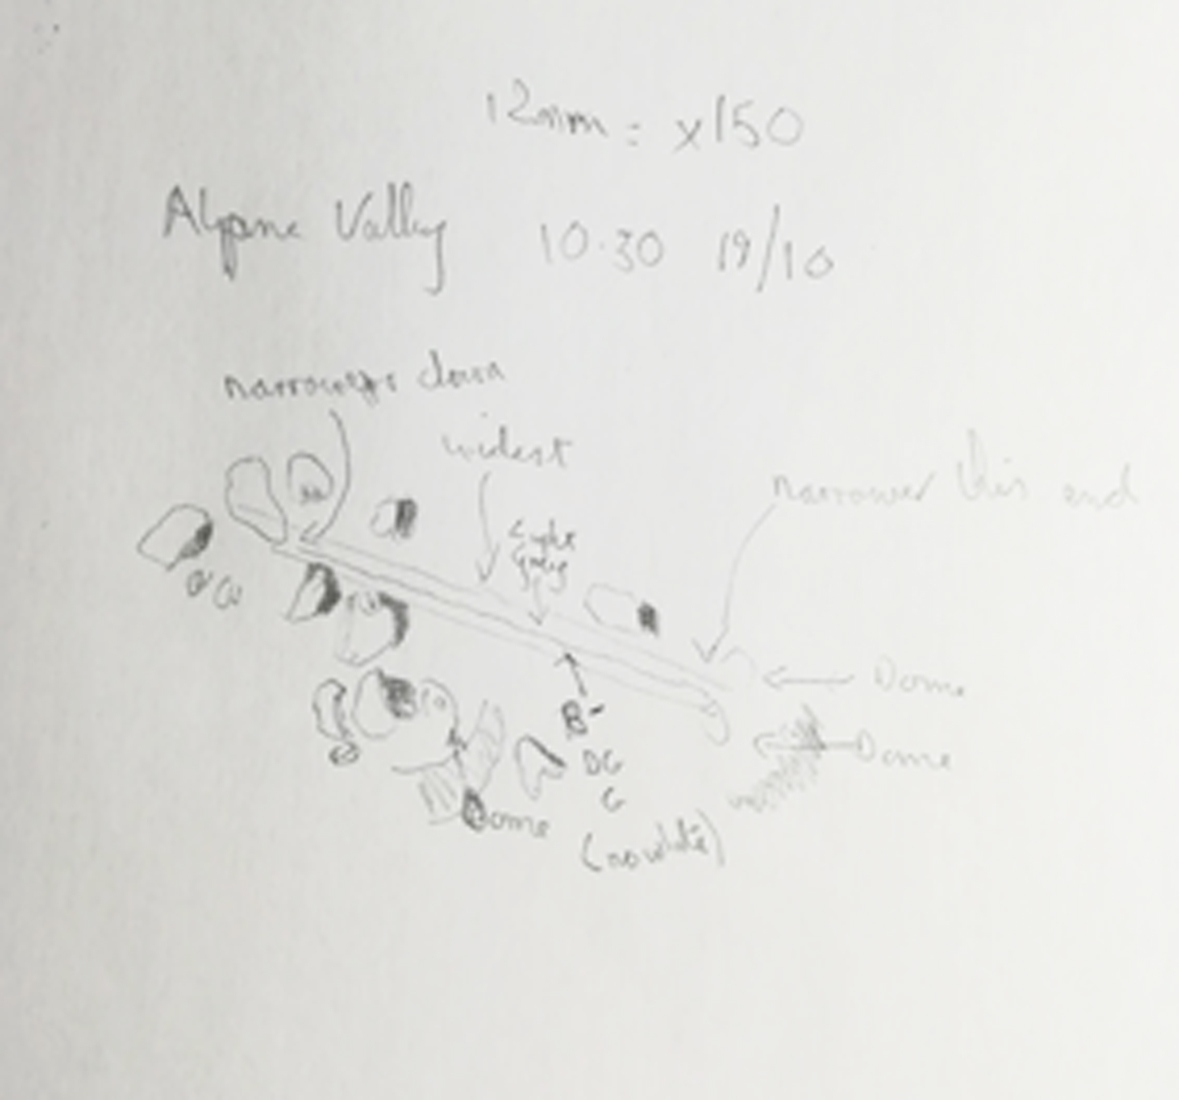 12mm = x150
Alpine Valley 10.30 19/10
down
widest
narrower this end
Light
Grey
Dome
B-
Dome
DG
G
Dome
(no white)